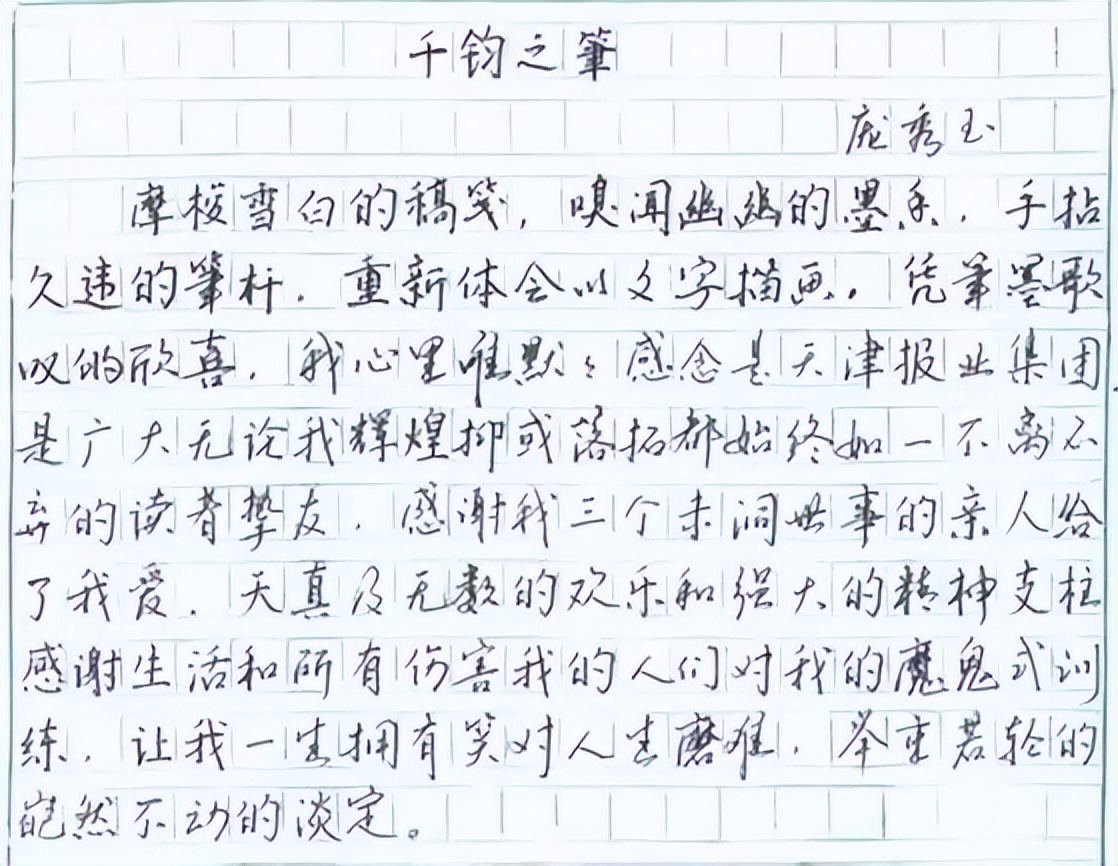 千钧之筆
庞秀玉
摩梭雪白的稿笺，嗅闻幽幽的墨香，手拈
久违的筆杆，重新体会以文字描画，凭筆墨歌
叹的欣喜，我心里唯默々感念是天津报业集团，
是广大无论我辉煌抑或落拓都始终如一不离不
弃的读者挚友，感谢我三个未洞世事的亲人给
了我爱，天真及无数的欢乐和强大的精神支柱
感谢生活和所有伤害我的人们对我的魔鬼式训
练，让我一生拥有笑对人生磨难，举重若轻的
岿然不动的淡定。